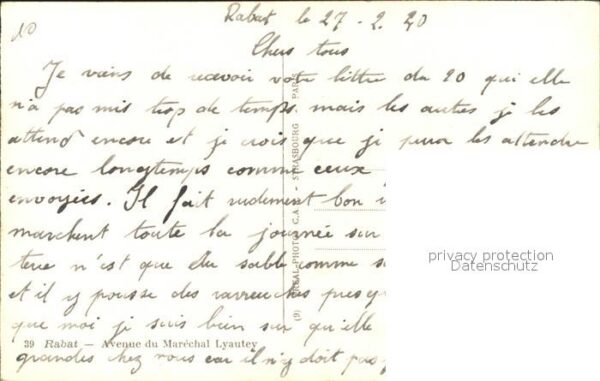 Rabat le 27-2.40
Chers tous
Je viens de recevoir votre lettre du 20 qui elle
n'a pas mis trop de temps. mais les autres je les
attend encore et je crois que je peux les attendre
encore longtemps comme ceux
envoyées. Il fait rudement bon
marchent toute la journée
terre n'est que du sable comme
et il y pousse des
que moi je suis bien sur qu'elle
39 Rabat — Avenue du Maréchal Lyautey
grandes chez nous car il n'y doit pas
(9) RÉAL-PHOTO C.A.P. - STRASBOURG PARIS
privacy protection
Datenschutz